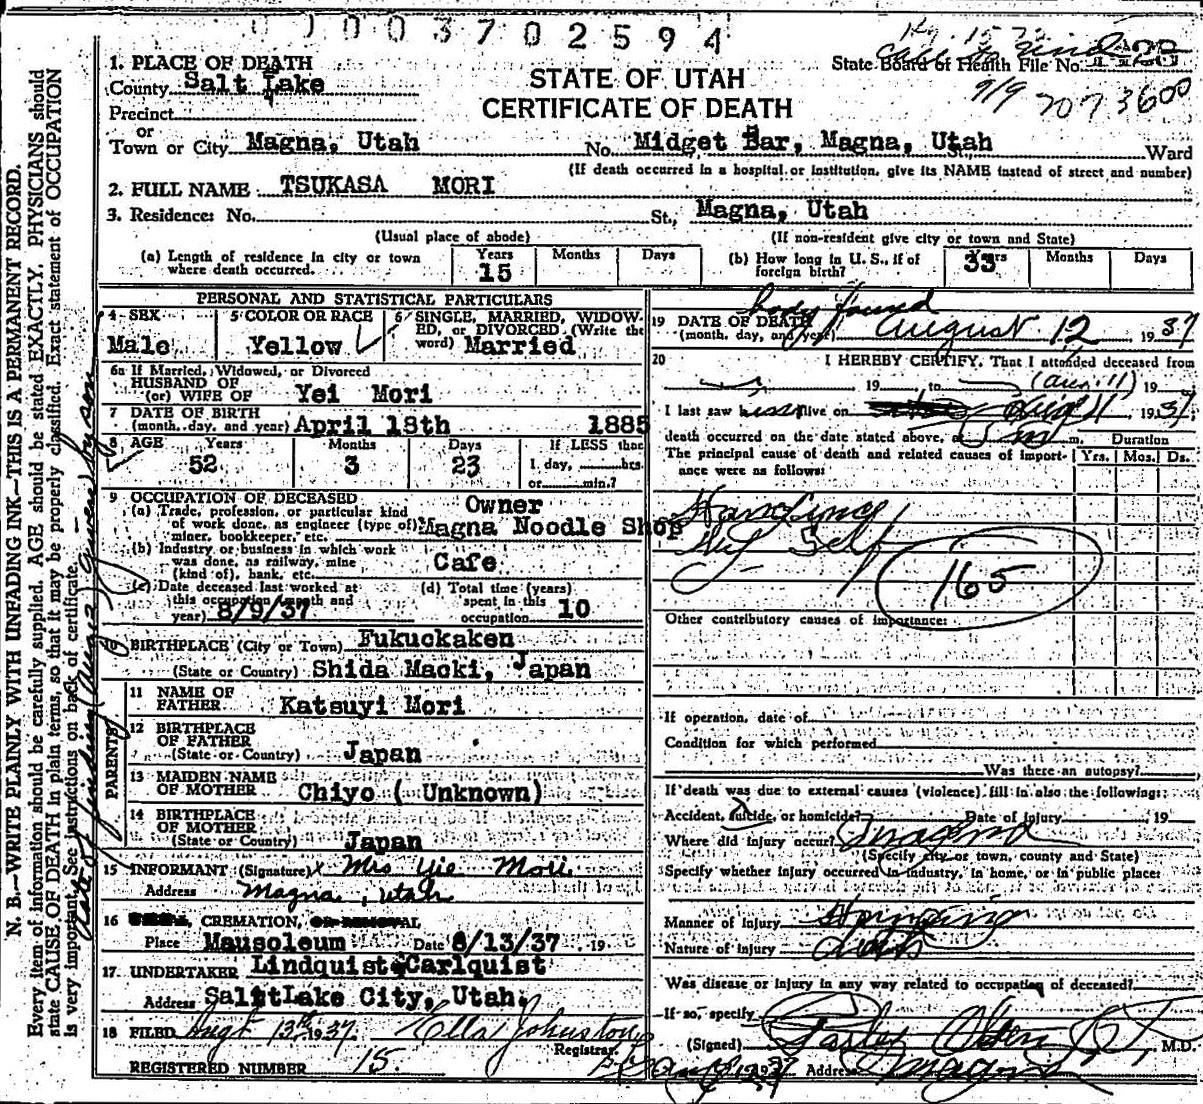 0003702594
STATE OF UTAH
CERTIFICATE OF DEATH
State Board of Health File No.
9/9 7073600
1. PLACE OF DEATH
County Salt Lake
Precinct
or
Town or City Magna, Utah No. Midget Bar, Magna, Utah St., Ward
(If death occurred in a hospital or institution, give its NAME instead of street and number)
2. FULL NAME TSUKASA MORI
3. Residence: No. St., Magna, Utah
(Usual place of abode) (If non-resident give city or town and State)
(a) Length of residence in city or town where death occurred. Years 15 Months Days
(b) How long in U. S., if of foreign birth? Years 33 Months Days
PERSONAL AND STATISTICAL PARTICULARS
4 SEX Male
5 COLOR OR RACE Yellow
6 SINGLE, MARRIED, WIDOWED, or DIVORCED (Write the word) Married
6a If Married, Widowed, or Divorced
HUSBAND OF
(or) WIFE OF Yei Mori
7 DATE OF BIRTH
(month, day, and year) April 18th 1885
8 AGE Years 52 Months 3 Days 23 If LESS than
1 day, hrs.
or min.?
9 OCCUPATION OF DECEASED
(a) Trade, profession, or particular kind of work done, as engineer (type of) miner, bookkeeper, etc. Owner Magna Noodle Shop
(b) Industry or business in which work was done, as railway, mine (kind of), bank, etc. Cafe
(c) Date deceased last worked at this occupation (month and year) 8/9/37
(d) Total time (years) spent in this occupation 10
10 BIRTHPLACE (City or Town) Fukuckaken
(State or Country) Shida Macki, Japan
PARENTS
11 NAME OF FATHER Katsuyi Mori
12 BIRTHPLACE OF FATHER
(State or Country) Japan
13 MAIDEN NAME OF MOTHER Chiyo ( Unknown)
14 BIRTHPLACE OF MOTHER
(State or Country) Japan
15 INFORMANT (Signature) x Mrs Yie Mori
Address Magna, Utah
16 CREMATION,
Place Mausoleum Date 8/13/37 19
17 UNDERTAKER Lindquist Carlquist
Address Salt Lake City, Utah.
18 FILED Augt 13th 1937. Ella Johnston
Registrar.
REGISTERED NUMBER 15.
body found
19 DATE OF DEATH
(month, day, and year) August 12 1937
20 I HEREBY CERTIFY, That I attended deceased from
19 , to (Aug. 11) 19
I last saw him alive on Aug 11 1937
death occurred on the date stated above, at m. Duration
The principal cause of death and related causes of importance were as follows: Yrs. Mos. Ds.
Hanging
Self
165
Other contributory causes of importance:
If operation, date of
Condition for which performed
Was there an autopsy?
If death was due to external causes (violence) fill in also the following:
Accident, suicide, or homicide? Date of injury 19
Where did injury occur? Magna
(Specify city or town, county and State)
Specify whether injury occurred in industry, in home, or in public place:
Manner of injury Hanging
Nature of injury
Was disease or injury in any way related to occupation of deceased?
If so, specify
(Signed) M.D.
Address Magna
N. B.—WRITE PLAINLY WITH UNFADING INK—THIS IS A PERMANENT RECORD.
Every item of information should be carefully supplied. AGE should be stated EXACTLY. PHYSICIANS should
state CAUSE OF DEATH in plain terms, so that it may be properly classified. Exact statement of OCCUPATION
is very important. See instructions on back of certificate.